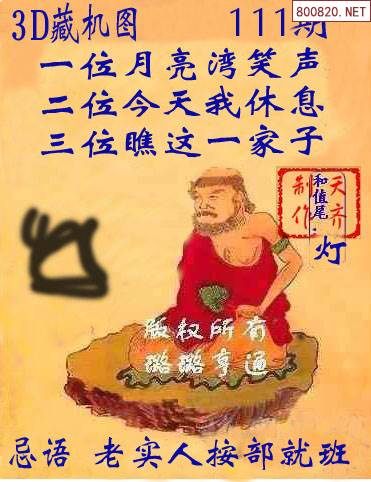 800820.NET
3D藏机图 111期
一位月亮湾笑声
二位今天我休息
三位瞧这一家子
天齐
制作
和值尾:
灯
版权所有
璐璐亨通
忌语 老实人按部就班